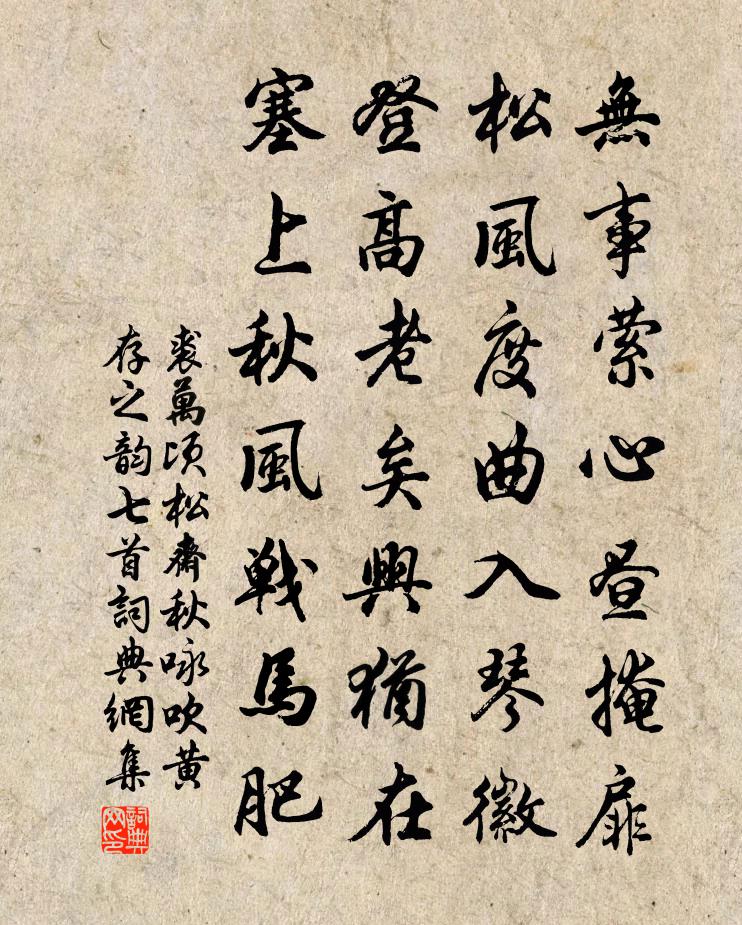 無事萦心昼掩扉
松風度曲入琴徽
登高老矣興猶在
塞上秋風戦馬肥
裘萬頃松齋秋咏吹黄
存之韵七首詞典網集
詞典
网印